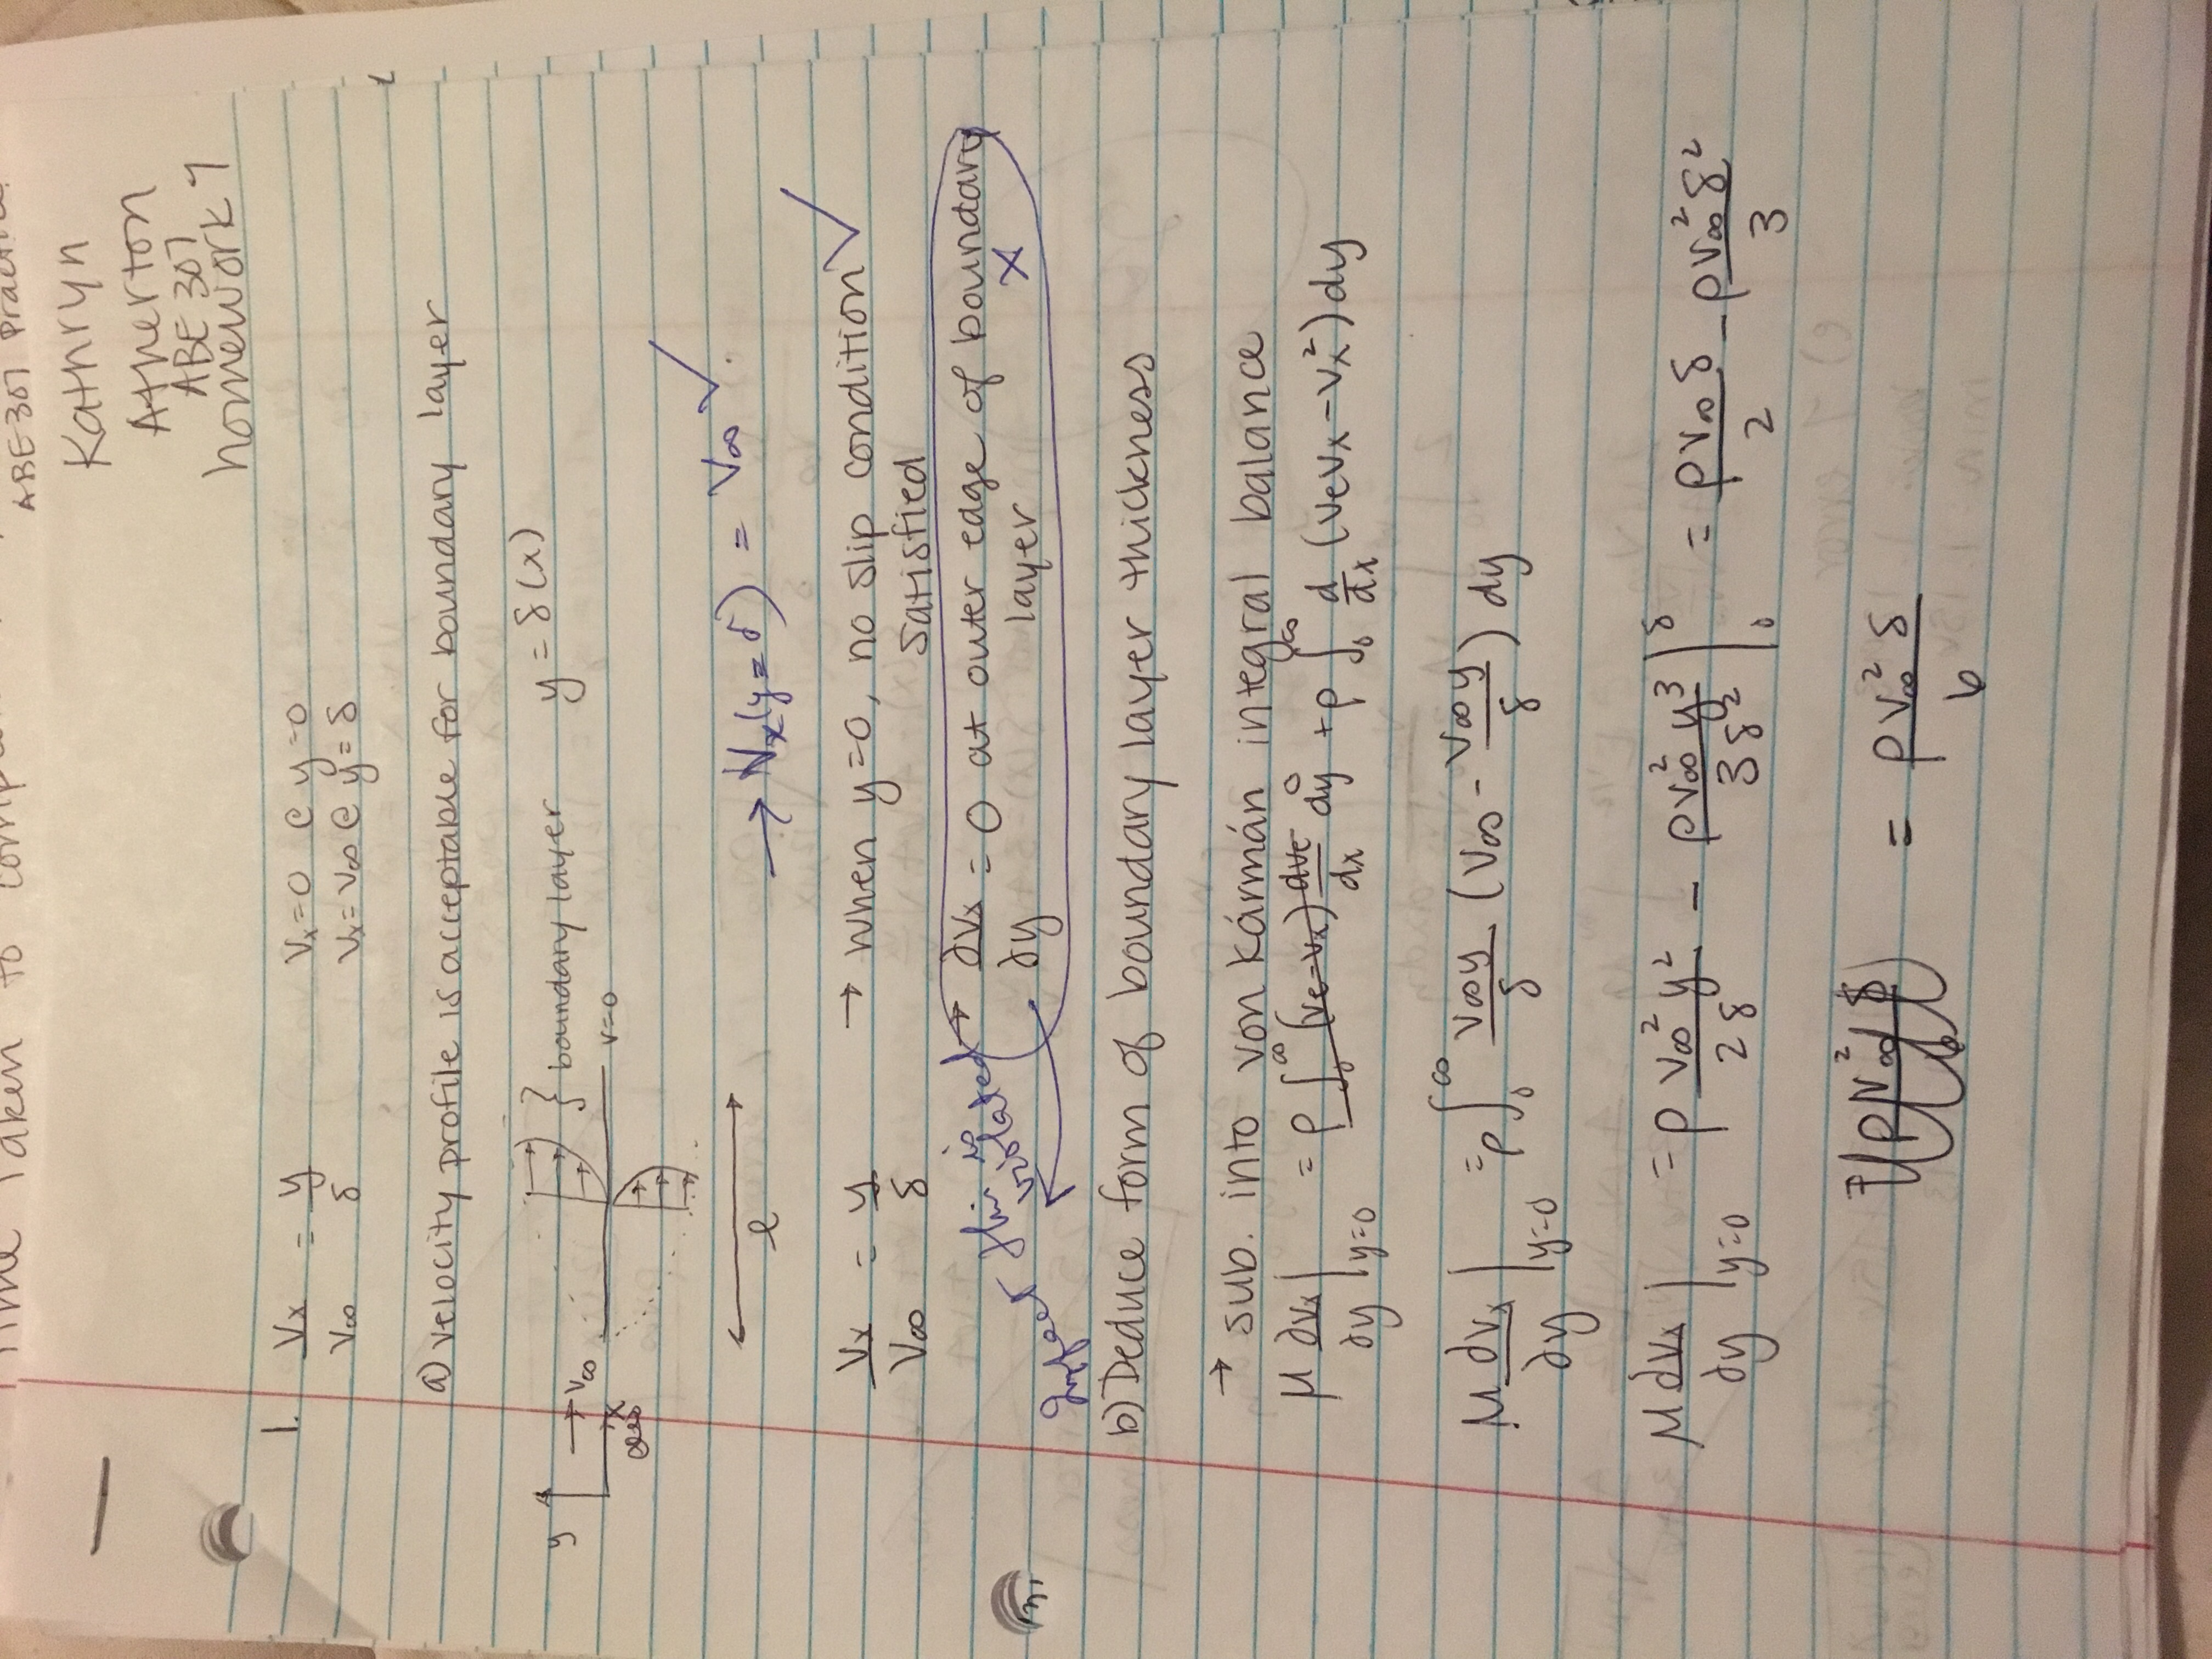 Time Taken to
ABE 307
Kathryn
Atherton
ABE 307
homework 7
1. Vx/V∞ = y/δ Vx=0 @ y=0
Vx=V∞ @ y=δ
a) velocity profile is acceptable for boundary layer
y V∞ x } boundary layer y = δ(x)
v=0
l
→ Vx(y=δ) = V∞ ✓.
Vx/V∞ = y/δ → when y=0, no slip condition ✓
satisfied
Infact this is violated → ∂Vx/∂y = 0 at outer edge of boundary
layer X
b) Deduce form of boundary layer thickness
→ sub. into von Kármán integral balance
μ ∂Vx/∂y |y=0 = ρ ∫0^∞ (Ve-Vx) dVe/dx dy 0 + ρ ∫0^∞ d/dx (VeVx - Vx²) dy
μ ∂Vx/∂y |y=0 = ρ ∫0^∞ V∞y/δ (V∞ - V∞y/δ) dy
μ ∂Vx/∂y |y=0 = ρ V∞² y²/2δ - ρV∞² y³/3δ² |0^δ = ρV∞ δ/2 - ρV∞² δ²/3
= ρV∞² δ/6